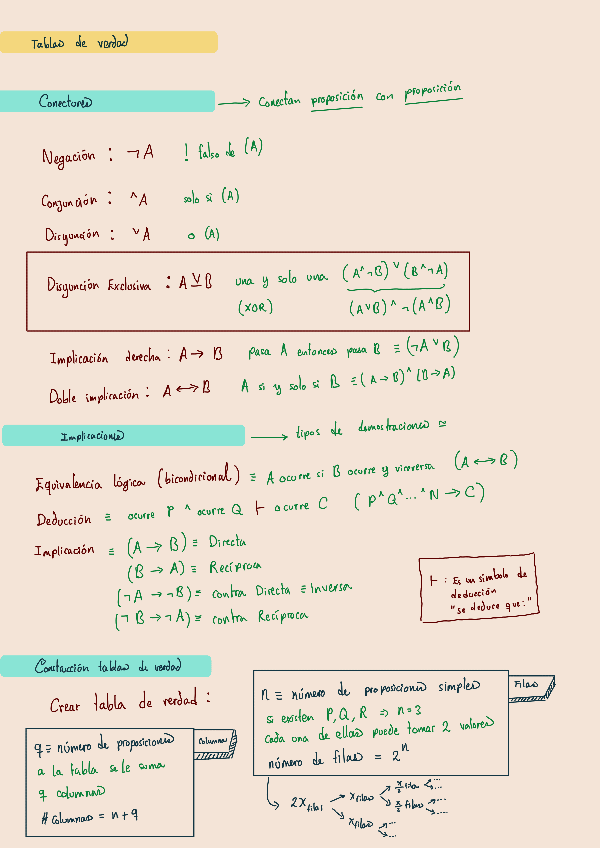 Tablas de verdad
Conectores → Conectan proposición con proposición
Negación : ¬A ! falso de (A)
Conjunción : ^A solo si (A)
Disyunción : ∨A o (A)
Disyunción Exclusiva : A⊻B una y solo una (A^¬B)∨(B^¬A)
(XOR) (A∨B)^¬(A^B)
Implicación derecha : A→B pasa A entonces pasa B ≡ (¬A∨B)
Doble implicación : A↔B A si y solo si B ≡ (A→B)^(B→A)
Implicaciones → tipos de demostraciones ≃
Equivalencia lógica (bicondicional) ≡ A ocurre si B ocurre y viceversa (A↔B)
Deducción ≡ ocurre P ^ ocurre Q ⊢ ocurre C (P^Q^...^N→C)
Implicación ≡ (A→B) ≡ Directa
(B→A) ≡ Recíproca
(¬A→¬B) ≡ contra Directa ≡ Inversa
(¬B→¬A) ≡ contra Recíproca
⊢ : Es un símbolo de
deducción
"se deduce que:"
Construcción tablas de verdad
Crear tabla de verdad :
q ≡ número de proposiciones
a la tabla se le suma
q columnas
# columnas = n + q
Columnas
n ≡ número de proposiciones simples
si existen P, Q, R ⇒ n=3
Cada una de ellas puede tomar 2 valores
número de filas = 2^n
Filas
2x filas → x filas → x/2 filas → ...
→ ...
→ x/2 filas → ...
→ ...
→ x filas → ...
→ ...